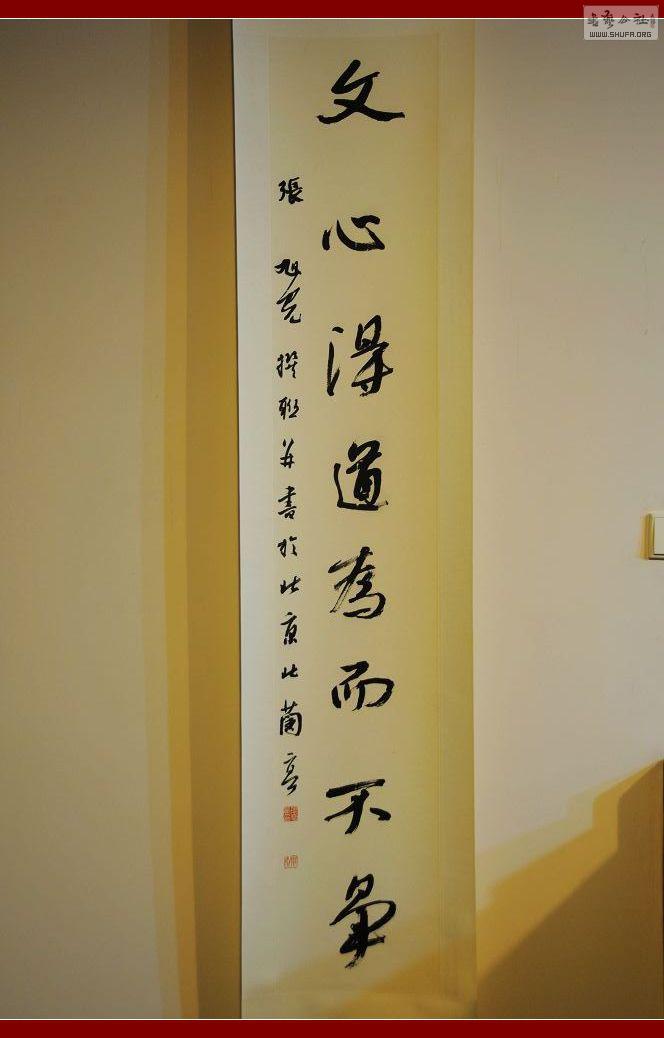 文心得道為而不爭
張旭光撰聯并書於北京北蘭亭
書藝公社
WWW.SHUFA.ORG